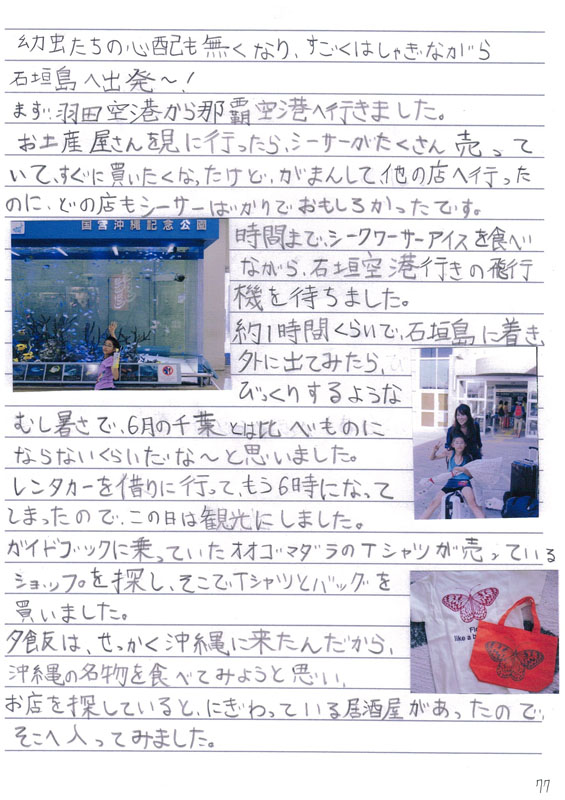 幼虫たちの心配も無くなり、すごくはしゃぎながら
石垣島へ出発〜!
まず、羽田空港から那覇空港へ行きました。
お土産屋さんを見に行ったら、シーサーがたくさん売って
いて、すぐに買いたくなったけど、がまんして、他の店へ行った
のに、どの店もシーサーばかりでおもしろかったです。
国営沖縄記念公園
時間まで、シークワーサーアイスを食べ
ながら、石垣空港行きの飛行
機を待ちました。
約1時間くらいで、石垣島に着き
外に出てみたら、
びっくりするような
むし暑さで、6月の千葉とは比べものに
ならないくらいだな〜と思いました。
レンタカーを借りに行って、もう6時になって
しまったので、この日は観光にしました。
ガイドブックに乗っていたオオゴマダラのTシャツが売っている
ショップを探し、そこでTシャツとバッグを
買いました。
夕食反は、せっかく沖縄に来たんだから、
沖縄の名物を食べてみようと思い、
お店を探していると、にぎわっている居酒屋があったので、
そこへ入ってみました。
like a b
77